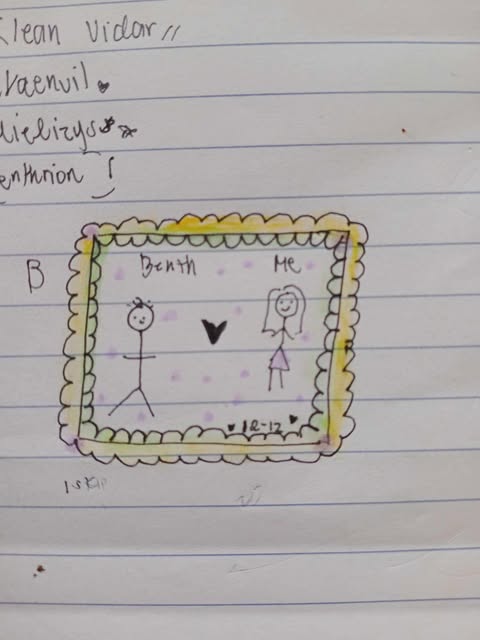 klean Vidar
raenvil
lielizys
enthrion
B
Benth Me
12-12
1 SKIP